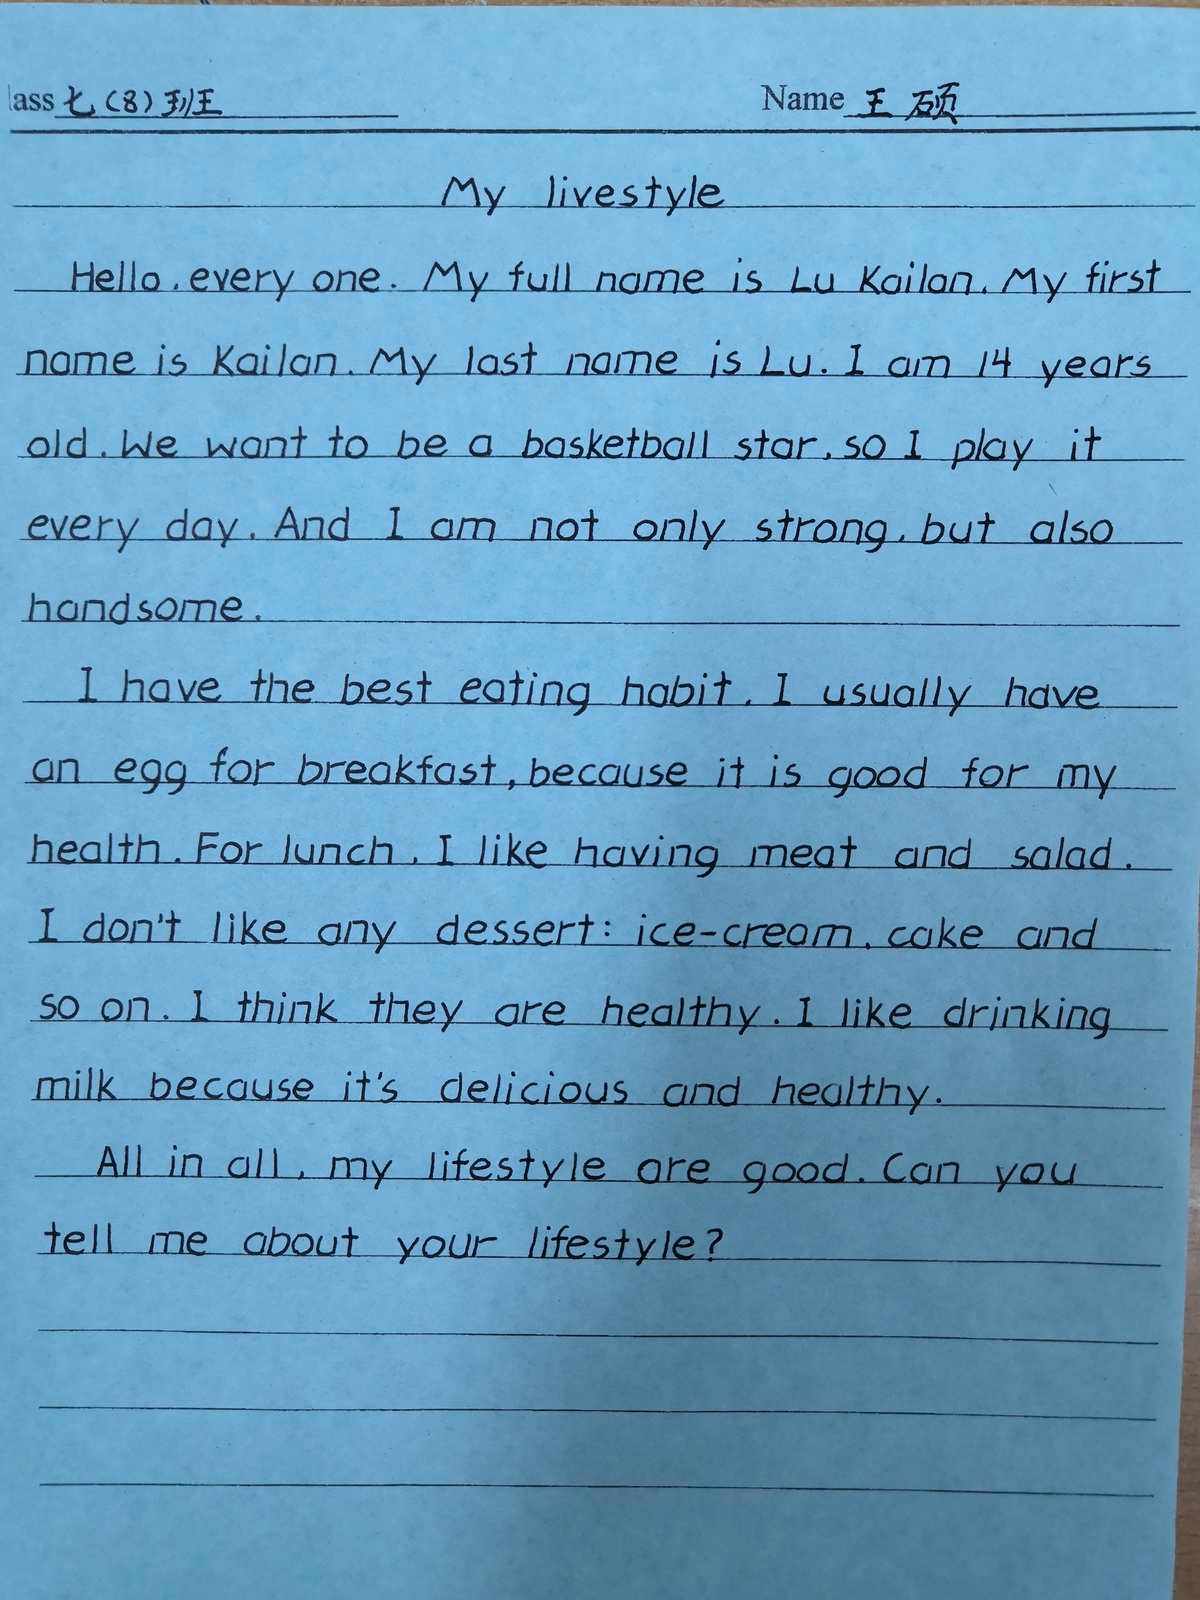 lass 七(8)班 Name 王硕
My livestyle
Hello, every one. My full name is Lu Kailan. My first
name is Kailan. My last name is Lu. I am 14 years
old. We want to be a basketball star, so I play it
every day. And I am not only strong, but also
handsome.
I have the best eating habit. I usually have
an egg for breakfast, because it is good for my
health. For lunch, I like having meat and salad.
I don't like any dessert: ice-cream, cake and
so on. I think they are healthy. I like drinking
milk because it's delicious and healthy.
All in all, my lifestyle are good. Can you
tell me about your lifestyle?